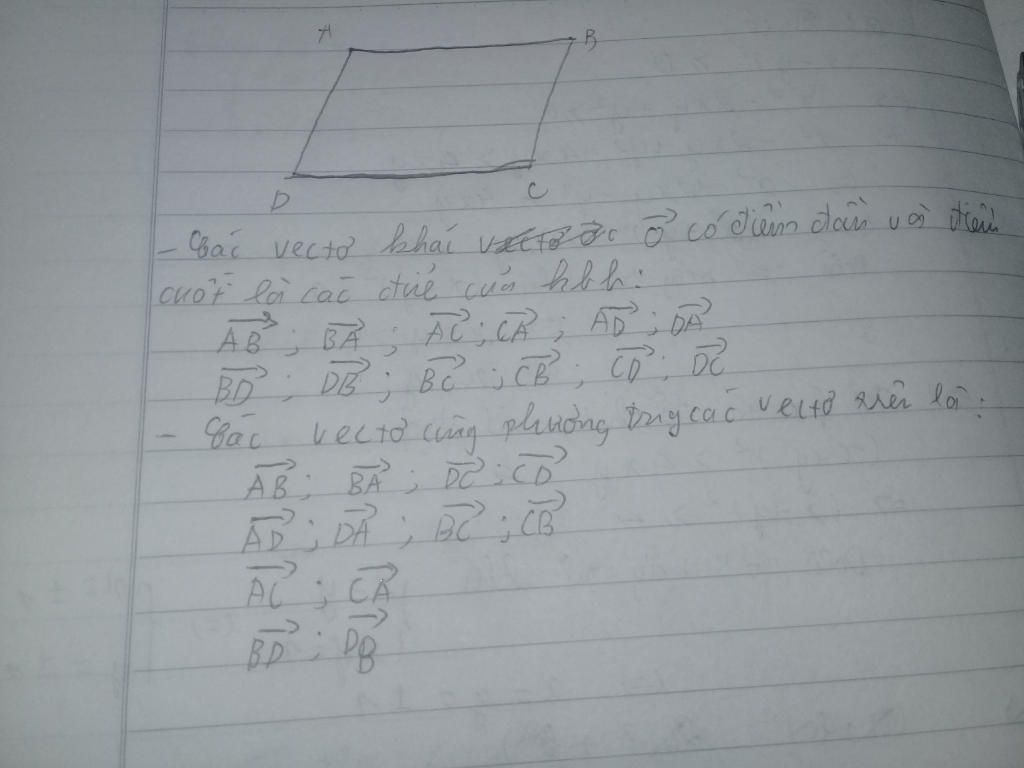 A B
D C
- Các vectơ khác vectơ 0⃗ có điểm đầu và điểm
cuối là các đỉnh của hbh:
A⃗B⃗ ; B⃗A⃗ ; A⃗C⃗ ; C⃗A⃗ ; A⃗D⃗ ; D⃗A⃗
B⃗D⃗ ; D⃗B⃗ ; B⃗C⃗ ; C⃗B⃗ ; C⃗D⃗ ; D⃗C⃗
- Các vectơ cùng phương trong các vectơ trên là:
A⃗B⃗ ; B⃗A⃗ ; D⃗C⃗ ; C⃗D⃗
A⃗D⃗ ; D⃗A⃗ ; B⃗C⃗ ; C⃗B⃗
A⃗C⃗ ; C⃗A⃗
B⃗D⃗ ; D⃗B⃗